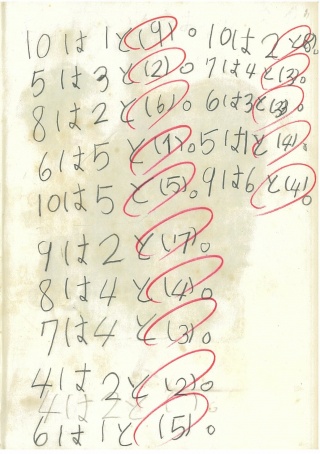 10は1と(9)。
5は3と(2)。
8は2と(6)。
6は5と(1)。
10は5と(5)。
9は2と(7)。
8は4と(4)。
7は4と(3)。
4は2と(2)。
6は1と(5)。
10は2と(8)。
7は4と(3)。
6は3と(3)。
5は1と(4)。
9は6と(4)。